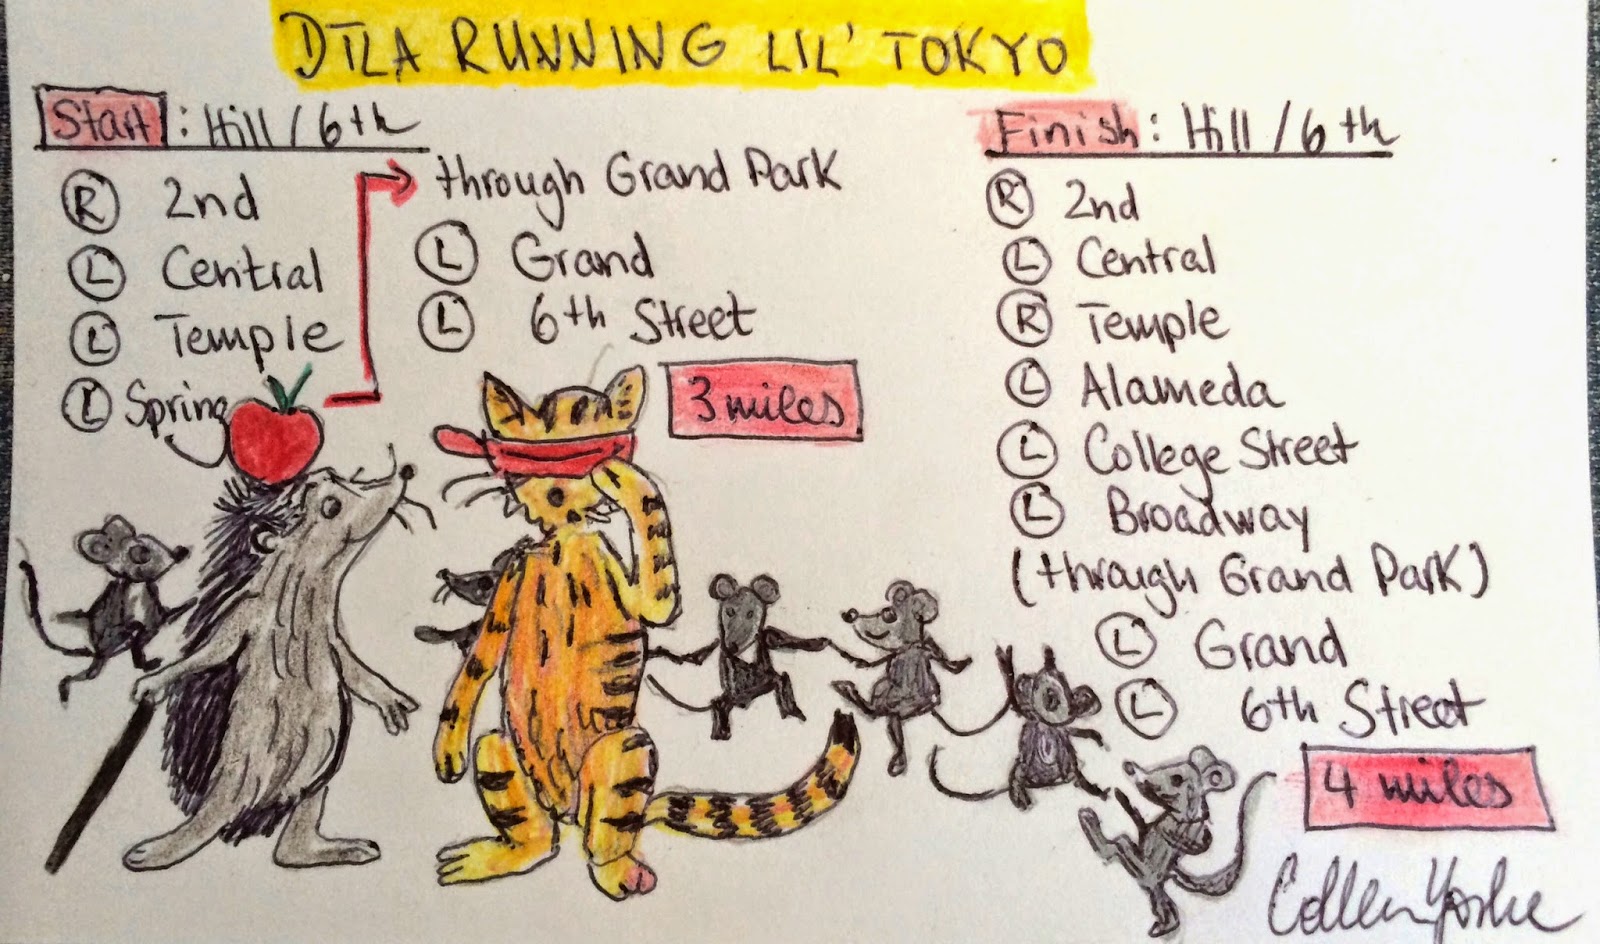 DTLA RUNNING LIL' TOKYO
Start: Hill / 6th
R 2nd
L Central
L Temple
L Spring
through Grand Park
L Grand
L 6th Street
3 miles
Finish: Hill / 6th
R 2nd
L Central
R Temple
L Alameda
L College Street
L Broadway
(through Grand Park)
L Grand
L 6th Street
4 miles
Colleen